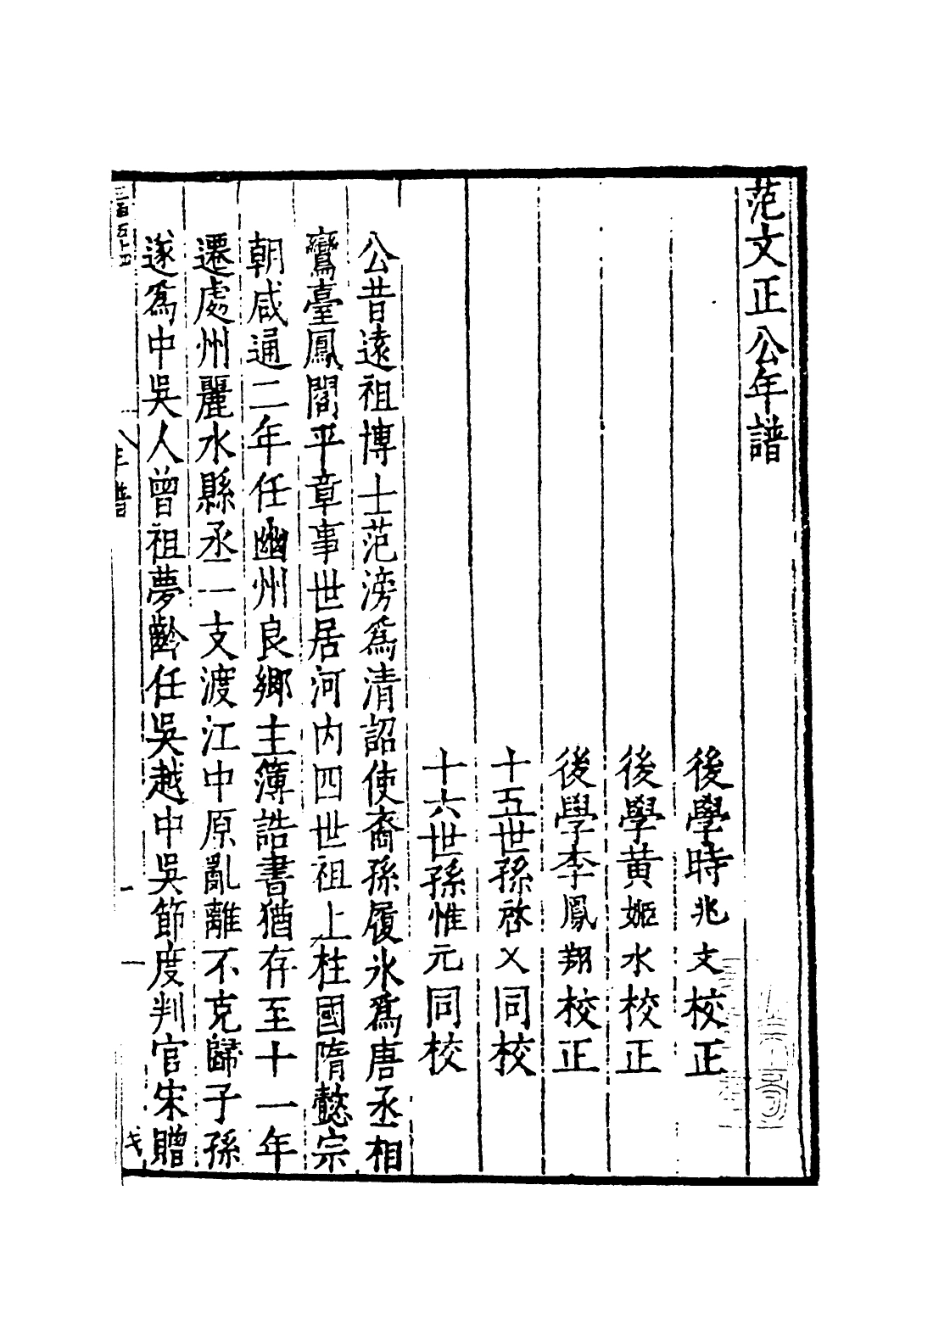 范文正公年譜
後學時兆文校正
後學黃姬水校正
後學李鳳翔校正
十五世孫啓乂同校
十六世孫惟元同校
公昔遠祖博士范滂爲清詔使裔孫履氷爲唐丞相
鸞臺鳳閣平章事世居河内四世祖上柱國隋懿宗
朝咸通二年任幽州良鄉主簿誥書猶存至十一年
遷處州麗水縣丞一支渡江中原亂離不克歸子孫
遂爲中吳人曾祖夢齡任吳越中吳節度判官宋贈
三百五十四
年譜